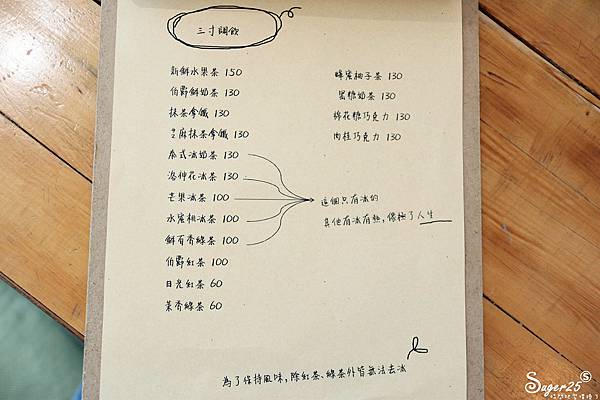 三寸調飲
新鮮水果茶 150
伯爵鮮奶茶 130
抹茶拿鐵 130
芝麻抹茶拿鐵 130
泰式冰奶茶 130
洛神花冰茶 130
芒果冰茶 100
水蜜桃冰茶 100
鮮百香綠茶 100
伯爵紅茶 100
日光紅茶 60
茉香綠茶 60
蜂蜜柚子茶 130
黑糖奶茶 130
棉花糖巧克力 130
肉桂巧克力 130
這個只有冰的
其他有冰有熱，像極了人生
為了保持風味，除紅茶、綠茶外皆無法去冰
Suger25